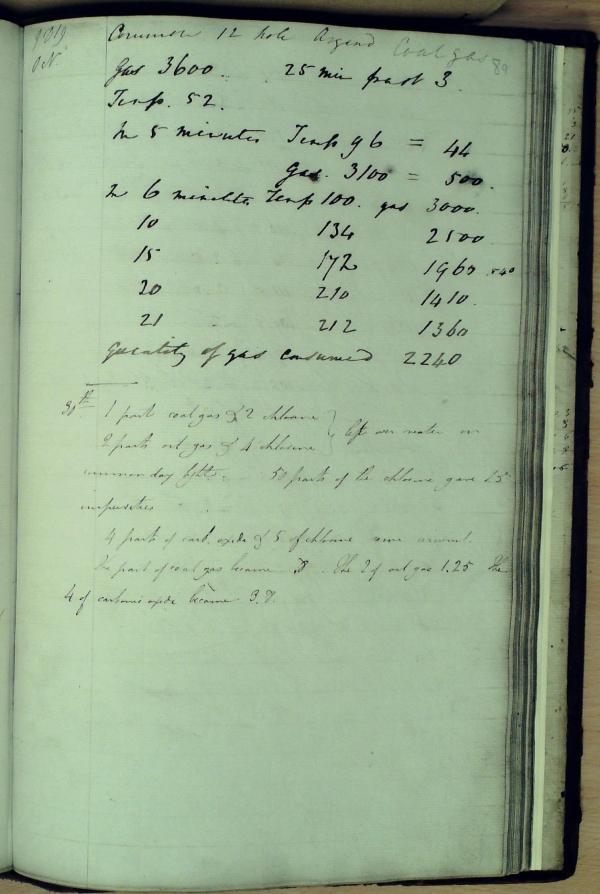 1819
Oct
Common 12 hole Argand Coal gas
89
Gas 3600. 25 min past 3.
Temp. 52.
In 5 minutes Temp 96 = 44
Gas. 3100 = 500.
In 6 minutes Temp 100. gas 3000.
10 134 2500
15 172 1960 540
20 210 1410.
21 212 1360
Quantity of gas consumed 2240
30th
1 part coal gas & 2 chlorine
2 parts oil gas & 4 chlorine } left over water in
common day light. 50 parts of the chlorine gave 1.5
impurities
4 parts of carb. oxide & 5 of chlorine
The part of coal gas became . The 2 of oil gas 1.25 The
4 of carbonic oxide became 3.7.